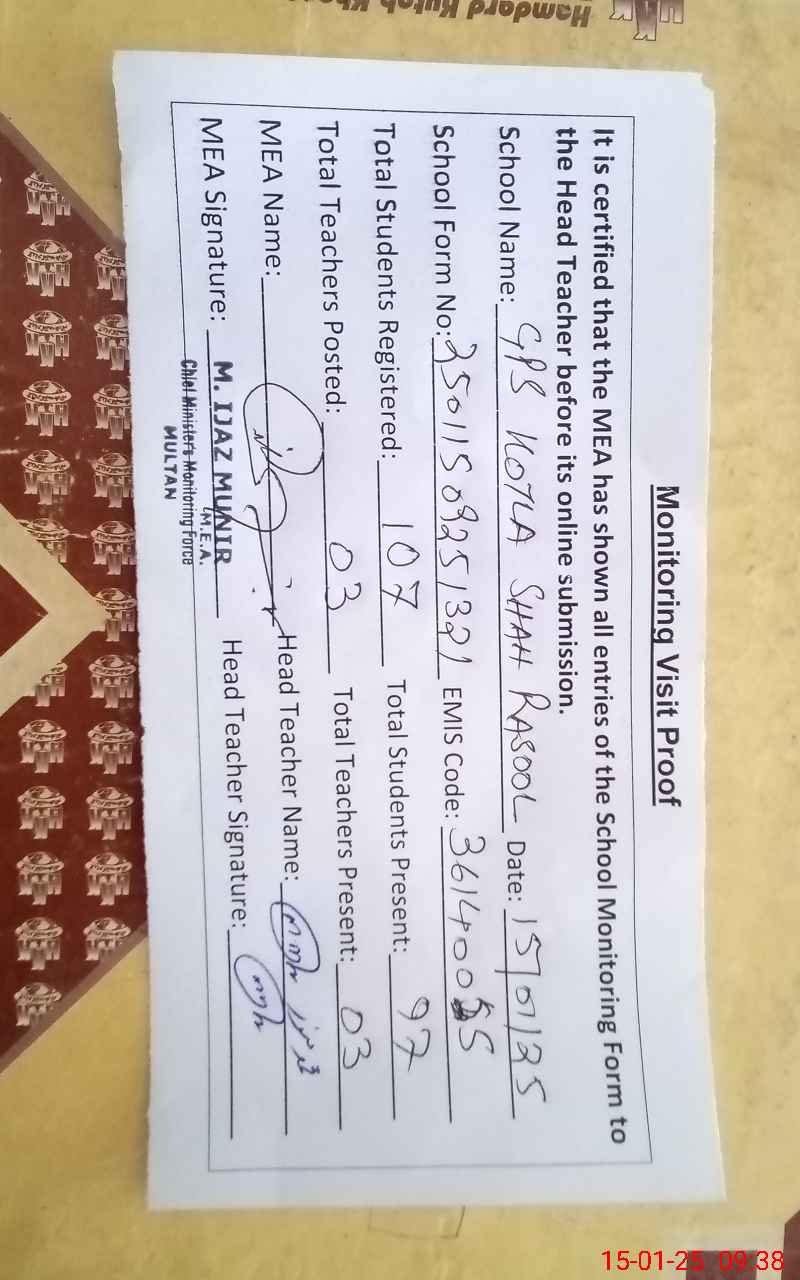 Monitoring Visit Proof
It is certified that the MEA has shown all entries of the School Monitoring Form to
the Head Teacher before its online submission.
School Name: GPS KOTLA SHAH RASOOL Date: 15/01/25
School Form No: 25011509251321 EMIS Code: 36140055
Total Students Registered: 107 Total Students Present: 97
Total Teachers Posted: 03 Total Teachers Present: 03
MEA Name: Head Teacher Name:
MEA Signature: M. IJAZ MUNIR Head Teacher Signature:
M.E.A.
Chief Minister's Monitoring Force
MULTAN
Hamdard Kutab
15-01-25 09:38